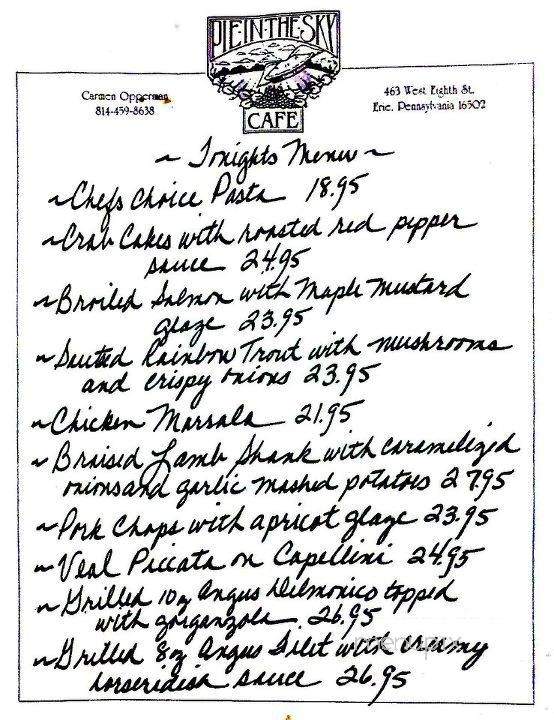 PIE·IN·THE·SKY
CAFE
Carmen Opperman
814-459-8638
463 West Eighth St.
Erie, Pennsylvania 16502
~ Tonights Menu ~
~Chefs Choice Pasta 18.95
~Crab Cakes with roasted red pepper
sauce 24.95
~Broiled Salmon with Maple Mustard
glaze 23.95
~Sauted Rainbow Trout with mushrooms
and crispy onions 23.95
~Chicken Marsala 21.95
~Braised Lamb Shank with caramelized
onions and garlic mashed potatoes 27.95
~Pork Chops with apricot glaze 23.95
~Veal Piccata on Capellini 24.95
~Grilled 10oz Angus Delmonico topped
with gorganzola 26.95
~Grilled 8oz Angus Filet with creamy
horseradish sauce 26.95